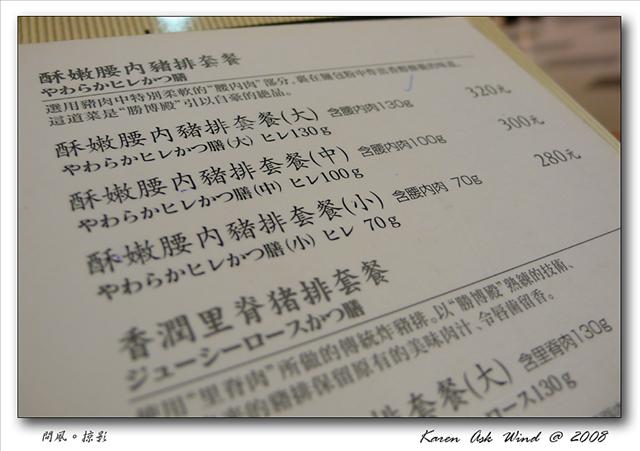 酥嫩腰內豬排套餐
やわらかヒレかつ膳
選用豬肉中特別柔軟的“腰內肉”部分,
這道菜是“勝博殿”引以自豪的絕品。
酥嫩腰內豬排套餐(大) 含腰內肉130g 320元
やわらかヒレかつ膳(大) ヒレ130g
酥嫩腰內豬排套餐(中) 含腰內肉100g 300元
やわらかヒレかつ膳(中) ヒレ100g
酥嫩腰內豬排套餐(小) 含腰內肉 70g 280元
やわらかヒレかつ膳(小) ヒレ 70g
香潤里脊猪排套餐
ジューシーロースかつ膳
使用“里脊肉”所做的傳統炸豬排。以“勝博殿”熟練的技術、
豬排保留原有的美味肉汁、令唇齒留香。
排套餐(大) 含里脊肉130g
ロース130g
問風。掠影
Karen Ask Wind @ 2008